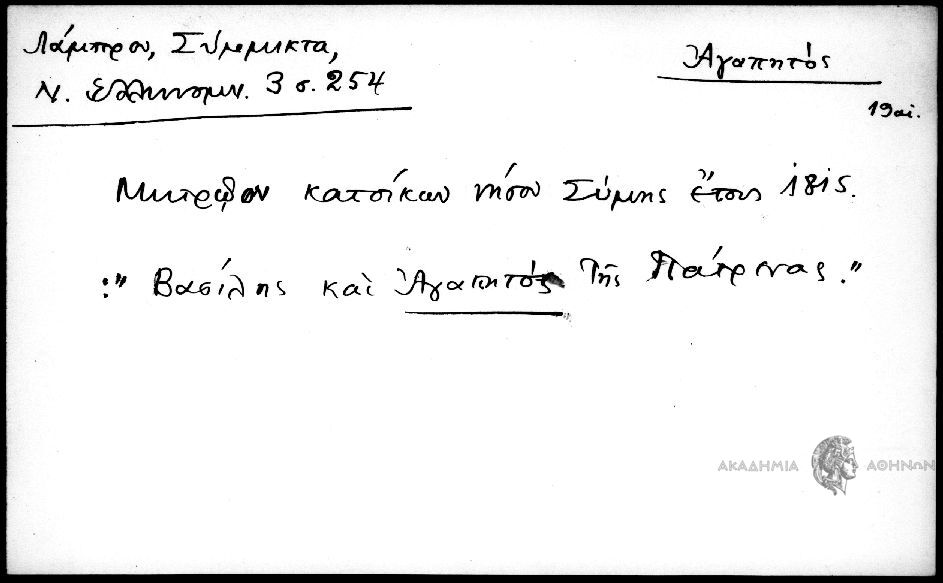 Λάμπρου, Σύμμικτα,
Ν. Ελληνομν. 3 σ. 254
Ἀγαπητός
19 αἰ.
Μητρῷον κατοίκων νήσου Σύμης ἔτους 1815.
:" Βασίλης καὶ Ἀγαπητός τῆς Πάτρενας."
ΑΚΑΔΗΜΙΑ ΑΘΗΝΩΝ